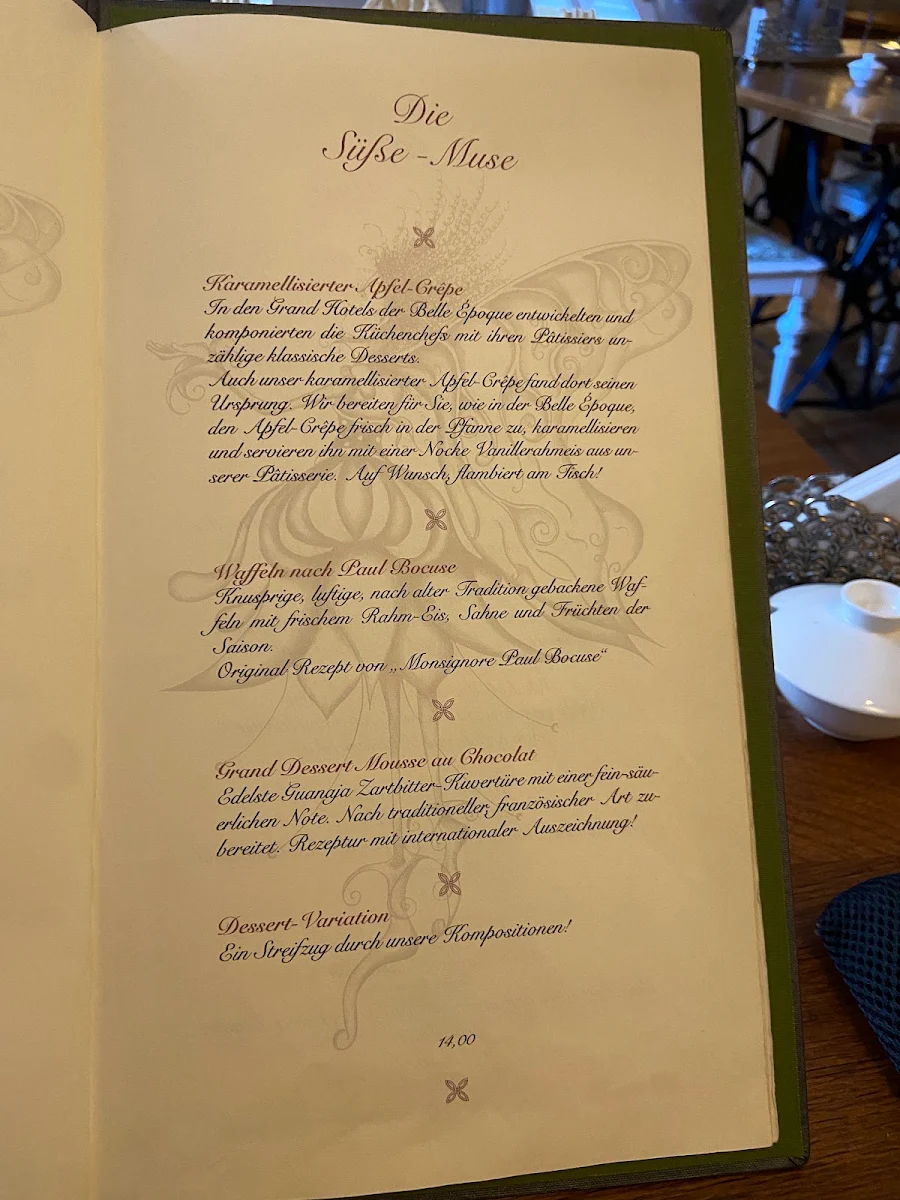 Die
Süße - Muse
Karamellisierter Apfel-Crêpe
In den Grand Hotels der Belle Époque entwickelten und
komponierten die Küchenchefs mit ihren Pâtissiers un-
zählige klassische Desserts.
Auch unser karamellisierter Apfel-Crêpe fand dort seinen
Ursprung. Wir bereiten für Sie, wie in der Belle Époque,
den Apfel-Crêpe frisch in der Pfanne zu, karamellisieren
und servieren ihn mit einer Nocke Vanillerahmeis aus un-
serer Pâtisserie. Auf Wunsch, flambiert am Tisch!
Waffeln nach Paul Bocuse
Knusprige, luftige, nach alter Tradition gebackene Waf-
feln mit frischem Rahm-Eis, Sahne und Früchten der
Saison.
Original Rezept von „Monsignore Paul Bocuse“
Grand Dessert Mousse au Chocolat
Edelste Guanaja Zartbitter-Kuvertüre mit einer fein-säu-
erlichen Note. Nach traditioneller, französischer Art zu-
bereitet. Rezeptur mit internationaler Auszeichnung!
Dessert-Variation
Ein Streifzug durch unsere Kompositionen!
14,00